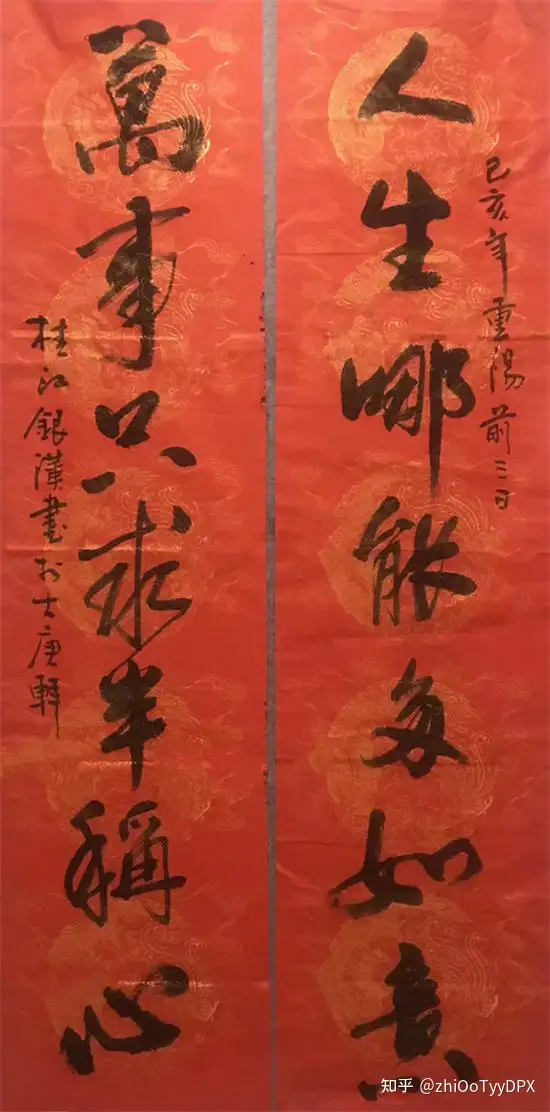 人生哪能多如意
己亥年重陽前三日
萬事只求半稱心
桂江銀漢書於軒
知乎 @zhiOoTyyDPX